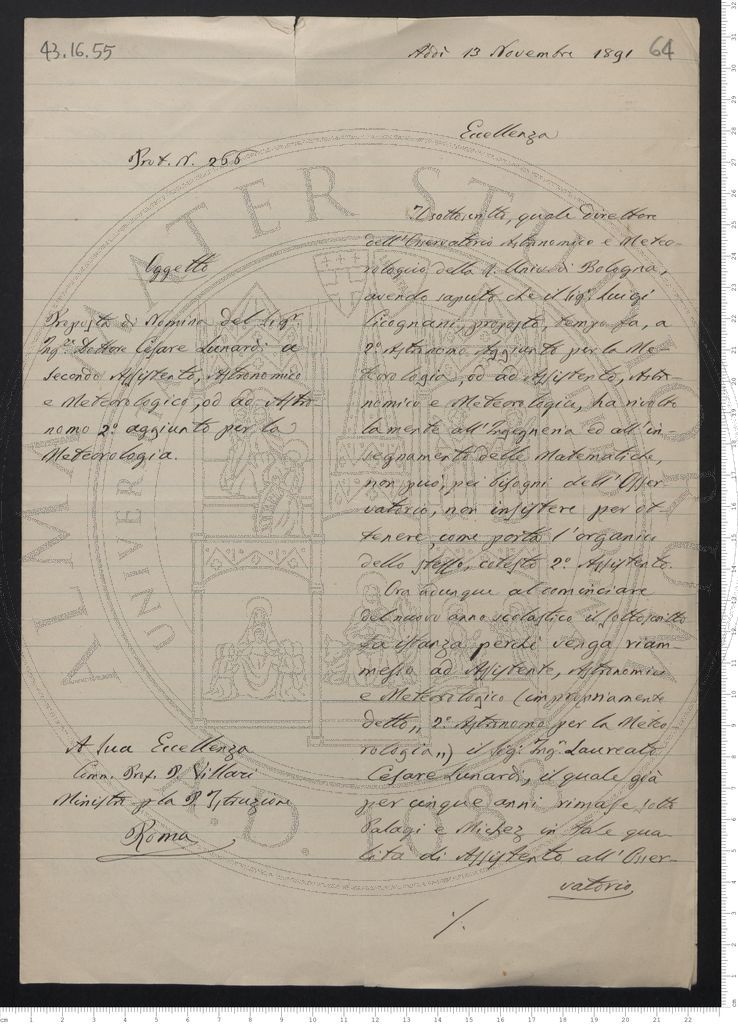 43.16.55
Addì 13 Novembre 1891
64
Eccellenza
Prot. N. 266
Oggetto
Proposta di Nomina del Sigr.
Ingre. Dottore Cesare Lunardi a
secondo Assistente, Astronomico
e Meteorologico, od ad Astro
nomo 2º aggiunto per la
Meteorologia.
Il sottoscritto, quale direttore
dell'Osservatorio Astronomico e Meteo-
rologico della R. Univ. di Bologna,
avendo saputo che il Sig. Luigi
Cicognani, proposto, tempo fa, a
2º Astronomo Aggiunto per la Me-
teorologia, od ad Assistente, Astro-
nomico e Meteorologico, ha rivolto
la mente all'Ingegneria ed all'in-
segnamento delle Matematiche,
non può, pei bisogni dell'Osser
vatorio, non insistere per ot
tenere, come porta l'organico
dello stesso, cotesto 2º Assistente.
Ora dunque al cominciare
del nuovo anno scolastico il sottoscritto
fa istanza perchè venga riam-
messo ad Assistente, Astronomico
e Meteorologico (impropriamente
detto „ 2º Astronomo per la Meteo-
rologia „) il Sigr. Ingre. Laureato
Cesare Lunardi, il quale già
per cinque anni rimase sotto
Palagi e Michez in tale qua
lità di Assistente all'Osser-
vatorio
A Sua Eccellenza
Comm. Prof. P. Villari
Ministro p la P. Istruzione
Roma
./.
ALMA MATER STUDIORUM
A.D. 1088